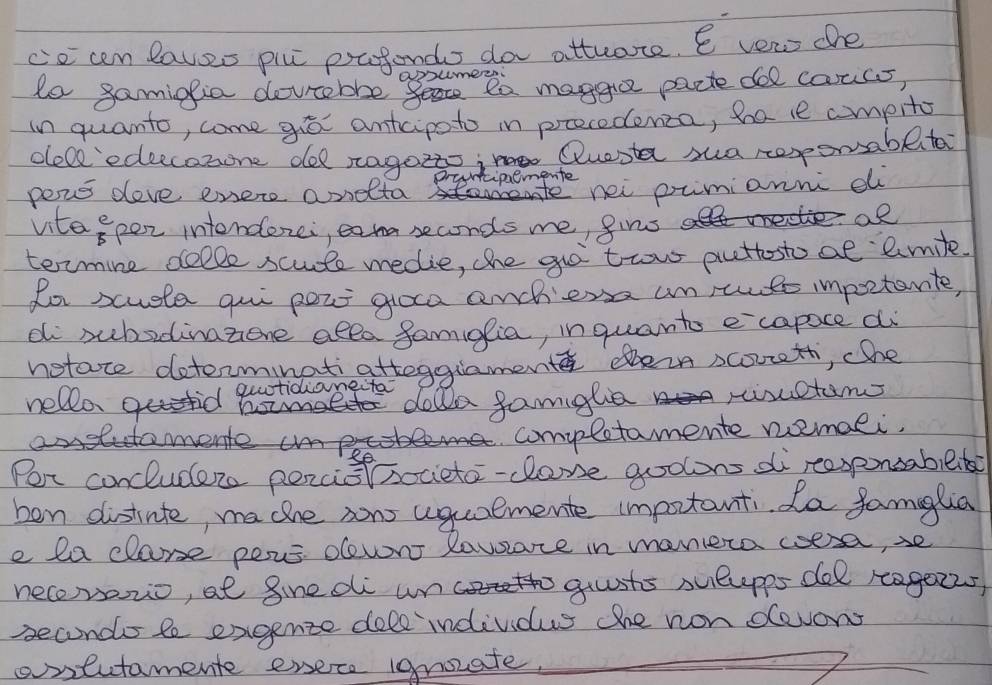 c'è un lavoro più profondo da attuare. È vero che
la famiglia dovrebbe assumersi la maggior parte del carico,
in quanto, come già anticipato in precedenza, ha il compito
dell'educazione del ragazzo; Questa sua responsabilità
però deve essere assolta principalmente nei primi anni di
vita e per intenderci, secondo me, fino al
termine delle scuole medie, che già trovo piuttosto al limite.
La scuola qui però gioca anch'essa un ruolo importante,
di subordinazione alla famiglia, in quanto è capace di
notare determinati atteggiamenti scorretti, che
nella quotidianeità della famiglia risultano
assolutamente un problema completamente normali.
Per concludere perciò la società-classe godono di responsabilità
ben distinte, ma che sono ugualmente importanti. La famiglia
e la classe però devono lavorare in maniera coesa, se
necessario, al fine di un corretto giusto sviluppo del ragazzo,
secondo le esigenze dell'individuo che non devono
assolutamente essere ignorate.